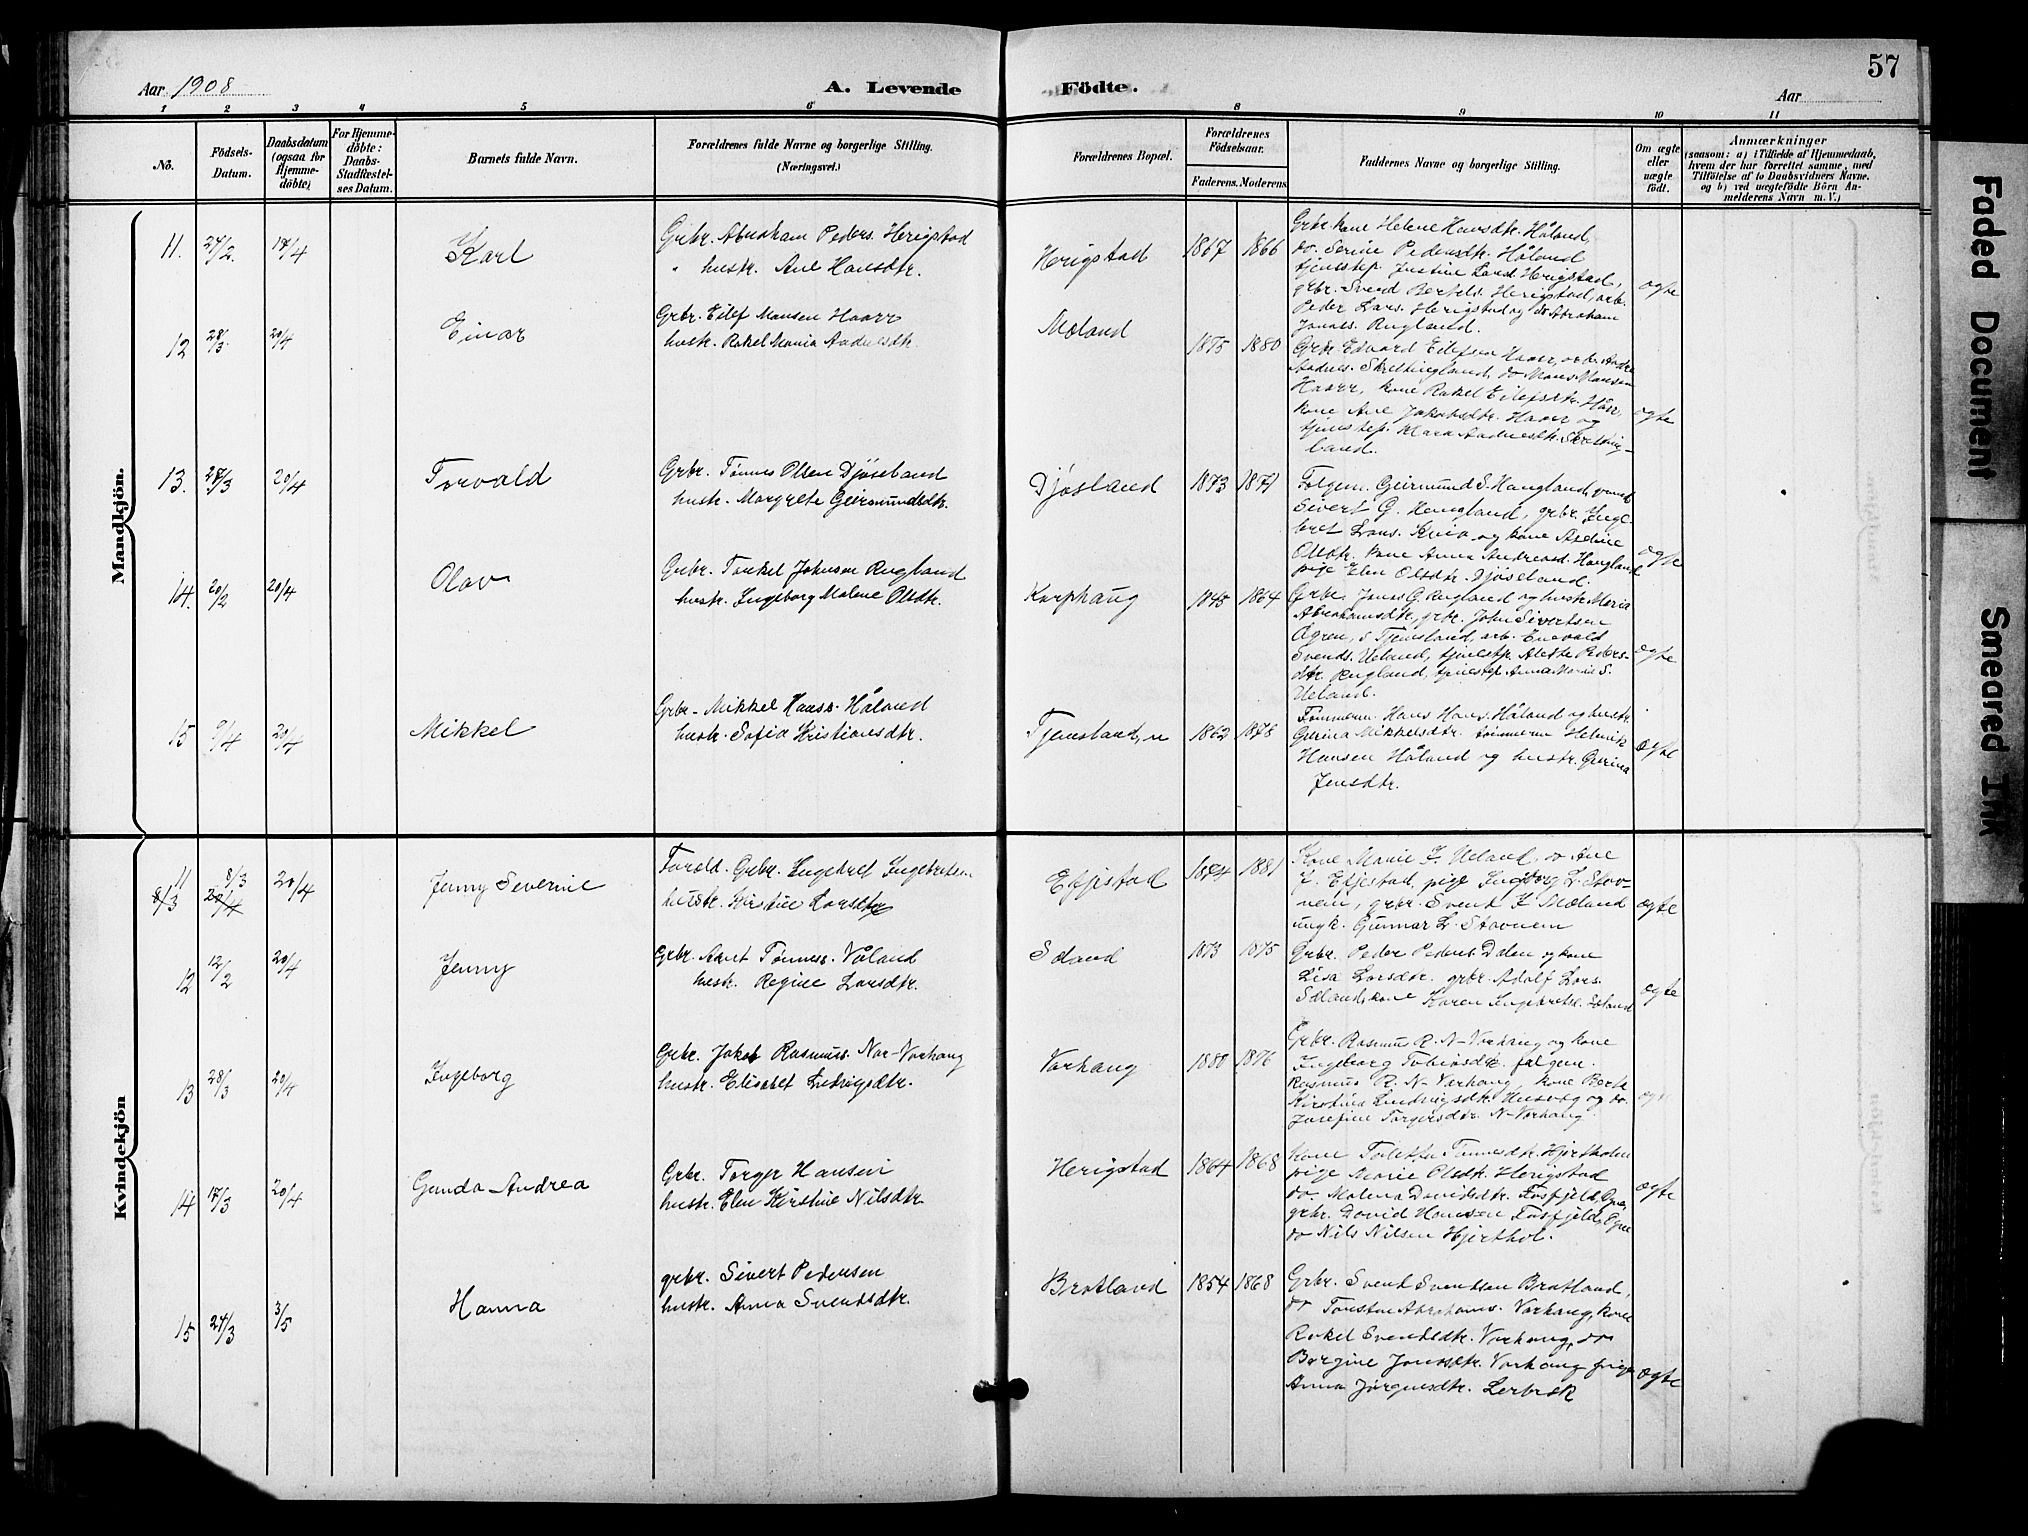 57
Aar 1908
A. Levende Födte.
Aar
1 2 3 4 5 6 8 9 10 11
Nö.
Födsels-Datum.
Daabsdatum (ogsaa for Hjemmedöbte)
For Hjemmedöbte: Daabs-Stadfæstelses Datum.
Barnets fulde Navn.
Forældrenes fulde Navne og borgerlige Stilling.
(Næringsvei.)
Forældrenes Bopæl.
Forældrenes Födselsaar.
Faderens. Moderens
Faddernes Navne og borgerlige Stilling.
Om ægte eller uægte födt.
Anmærkninger
(saasom: a) i Tilfælde af Hjemmedaab, hvem der har forrettet samme, med Tilföielse af to Daabsvidners Navne. og b) ved uægtefödte Börn Anmelderens Navn m. V.)
Mandkjön.
11. 24/2. 17/4 Karl
Grbr. Abraham Peders. Herigstad
" hustr. Ane Hansdtr.
Herigstad 1867 1866
Grbr kone Helene Hansdtr. Håland,
do. Serine Pedersdtr. Håland
tjenestep. Justine Larsd. Herigstad,
grbr. Svend Bertels. Herigstad, arb.
Peder Lars. Herigstad og do Abraham
Jonass. Rugland.
ægte
12 28/3. 20/4 Einar
Grbr. Eilef Mansen Haarr
hustr. Rakel Maria Andersdtr.
Mæland 1875 1880
Grbr Edvard Eilefsen Haarr, arb. Andre
Andres. Skretlingland, do Mons Mansen
Haarr, kone Rakel Eilefsdtr. Håar,
kone Ane Jakobsdtr. Haarr og
land.
ægte
13. 28/3 20/4 Torvald
Grbr. Tønnes Olsen Djøseland
hustr. Margrete Geirmundsdtr.
Djøsland 1873 1871
Følgem. Geirmund S. Haugland,
Sivert G. Haugland, grbr. Inge-
bret Lars. Kvia og kone
Olsdtr. kone Anna Andreasd. Haugland
pige Elen Olsdtr. Djøseland.
ægte
14. 20/2 20/4 Olav
Grbr. Torkel Johnsen Rugland
hustr. Ingeborg Malene Olsdtr.
Karphaug 1845 1864
Grbr. Jonas G. Rugland og hustr. Maria
Abrahamsdtr., grbr. John Sivertsen
Ogren, s Tjemsland, arb. Enevald
Svends. Ueland, tjenestp. Alette Peders-
dtr Rugland, tjenestep Anna Maria S.
Ueland.
ægte
15 9/4 20/4 Mikkel
Grbr. Mikkel Hanss. Håland
hustr. Sofia Kristiansdtr.
Tjemsland, n 1862 1878
Tømmerm. Hans Hans. Håland og hustr
Gurina Mikkelsdtr. tømmerm Helmik
Hansen Håland og hustr. Gurina
Jensdtr.
ægte
Kvindekjön
11 8/3 8/3 20/4 20/4 Jenny Severine
Forold. Grbr. Ingebret Ingebretsen
hustr. Kirstine Larsdtr
Efjestad 1874 1881
Kone Marie J. Ueland, do Ane
J. Efjestad, pige Ingeborg L. Stav-
nem, grbr. Svend J Mæland
ungk. Gunnar L. Stavnem
ægte
12 12/2 20/4 Jenny
Grbr. Aant Tønness. Våland
hustr. Regine Larsdtr.
Sæland 1873 1875
Grbr. Peder Peders. Dalen og kone
Lisa Larsdtr. grbr. Adolf Lars.
Sæland, kone Karen Ingebretsd. Sæland
ægte
13 28/3 20/4 Ingeborg
Grbr. Jakob Rasmuss. Nor-Varhaug
hustr. Elisabet Ludvigsdtr.
Varhaug 1880 1876
Grbr. Rasmus R. N-Varhaug og kone
Ingeborg Tobiasdtr. følgem.
Rasmus R. N-Varhaug, kone Berte
Kirstina Ludvigsdtr. Husvåg og do.
Josefine Torgersdtr. N-Varhaug.
14 17/3 20/4 Gunda Andrea
Grbr. Torger Hansen
hustr. Elen Kirstine Nilsdtr.
Herigstad 1864 1868
Kone Tolette Tønnesdtr. Hjertholm
pige Marie Olsdtr. Herigstad
do Malena Davidsdtr. Fosfjeld, Ogne
grbr. David Hansen Fosfjeld, Ogne
do Nils Nilsen Hjerthol.
ægte
15 24/3 3/5 Hanna
grbr. Sivert Pedersen
hustr. Anna Svendsdtr.
Bratland 1854 1868
Grbr. Svend Svendsen Bratland,
do Torsten Abrahams. Varhaug, kone
Rakel Svendsdtr. Varhaug, do
Bergine Jonasdtr. Varhaug pige
Anna Jørgensdtr. Lerbrek
ægte
Faded Document
Smeared Ink